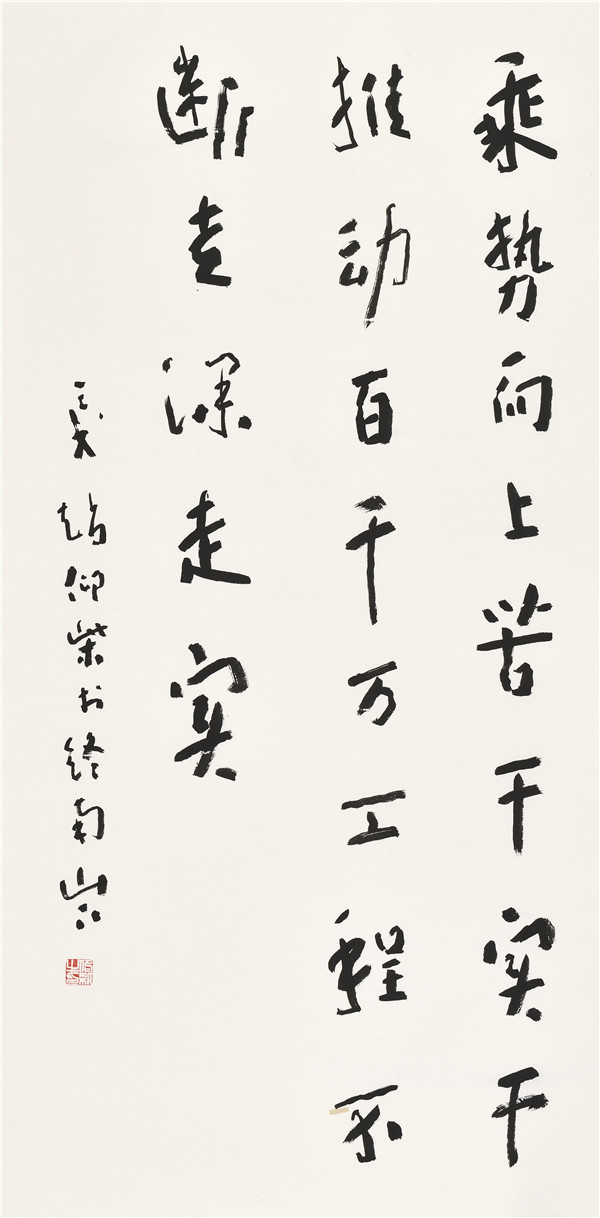 乘势而上苦干实干
推动百千万工程不
断走深走实
赵仰柴于终南山下